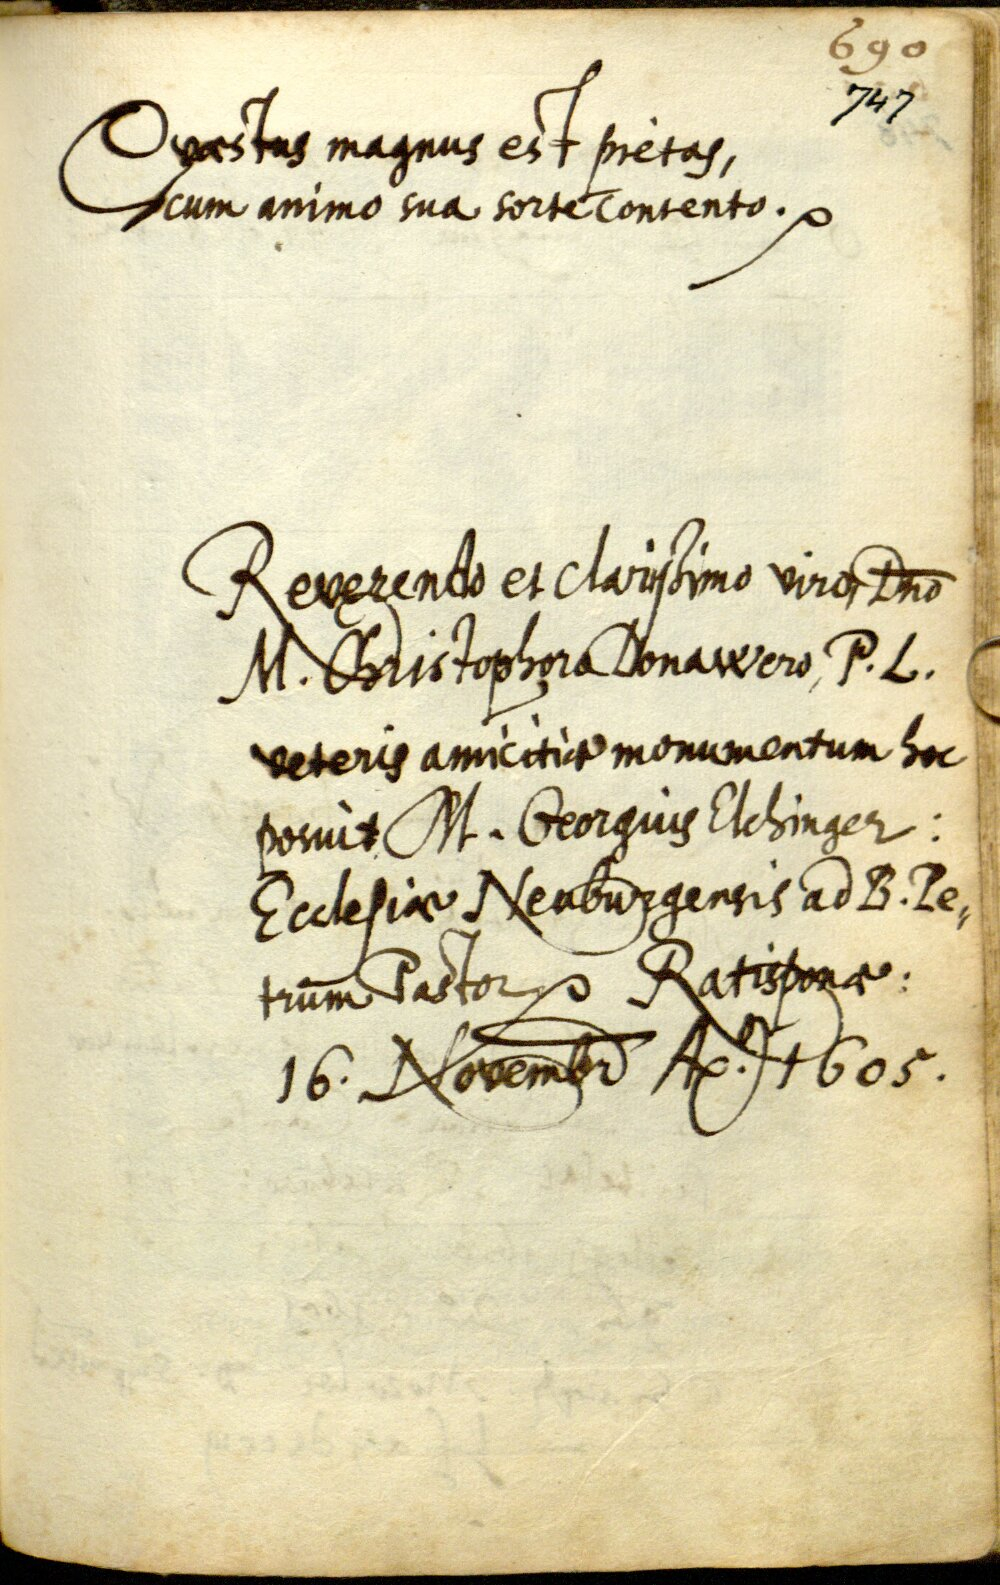 690
747
Quæstus magnus est pietas,
cum animo sua sorte contento.
Reverendo et clarissimo viro, Dno
M. Christophoro Donawero, P. L.
veteris amicitiæ monumentum hoc
posuit M. Georgius Elchinger:
Ecclesiæ Neuburgensis ad B. Pe,,
trum Pastor Ratisponæ:
16. Novembr Ao. 1605.